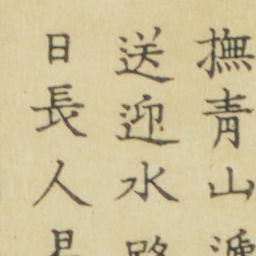 撫青山遞
送迎水路
日長人